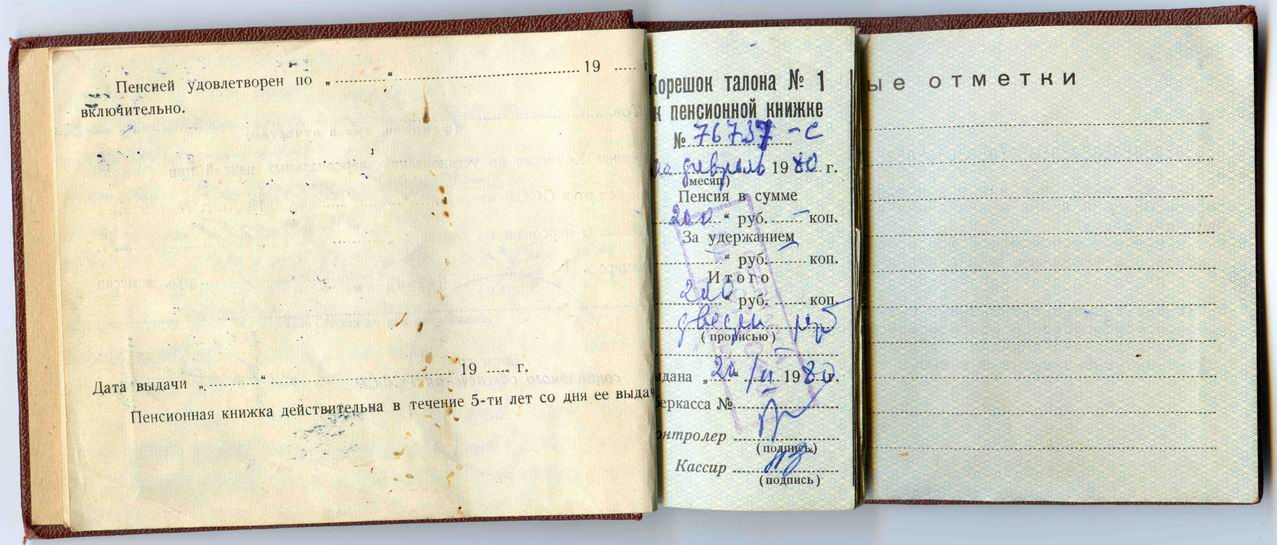 Пенсией удовлетворен по „ “ 19
включительно.
Дата выдачи „ “ 19 г.
Пенсионная книжка действительна в течение 5-ти лет со дня ее
Корешок талона № 1
к пенсионной книжке
№ 76737-с
за февраль 1980 г.
(месяц)
Пенсия в сумме
200 “ руб. – коп.
За удержанием
“ руб. коп.
Итого
200 руб. – коп.
двести руб
(прописью)
20 “ II 1980 г.
№
Кассир
(подпись)
(подпись)
ые отметки